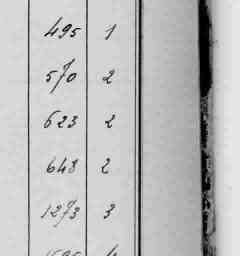 495 1
570 2
623 2
648 2
1273 3